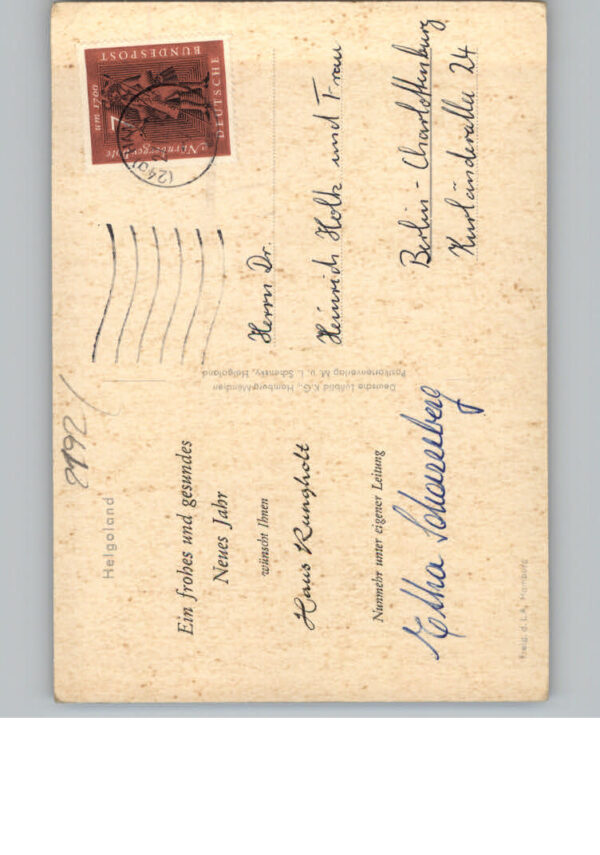 8192/
Helgoland
Ein frohes und gesundes
Neues Jahr
wünscht Ihnen
Haus Rungholt
Nunmehr unter eigener Leitung
Etha Scharenberg
Freig. d. L.A. Hamburg
Deutsche Luftbild K.G., Hamburg-Mendian
Postkartenverlag M. u. L. Schensky, Helgoland
um 1700
7
DEUTSCHE
BUNDESPOST
(24a) HAM
Herrn Dr.
Heinrich Holtz und Frau
Berlin-Charlottenburg
Kurländerallee 24